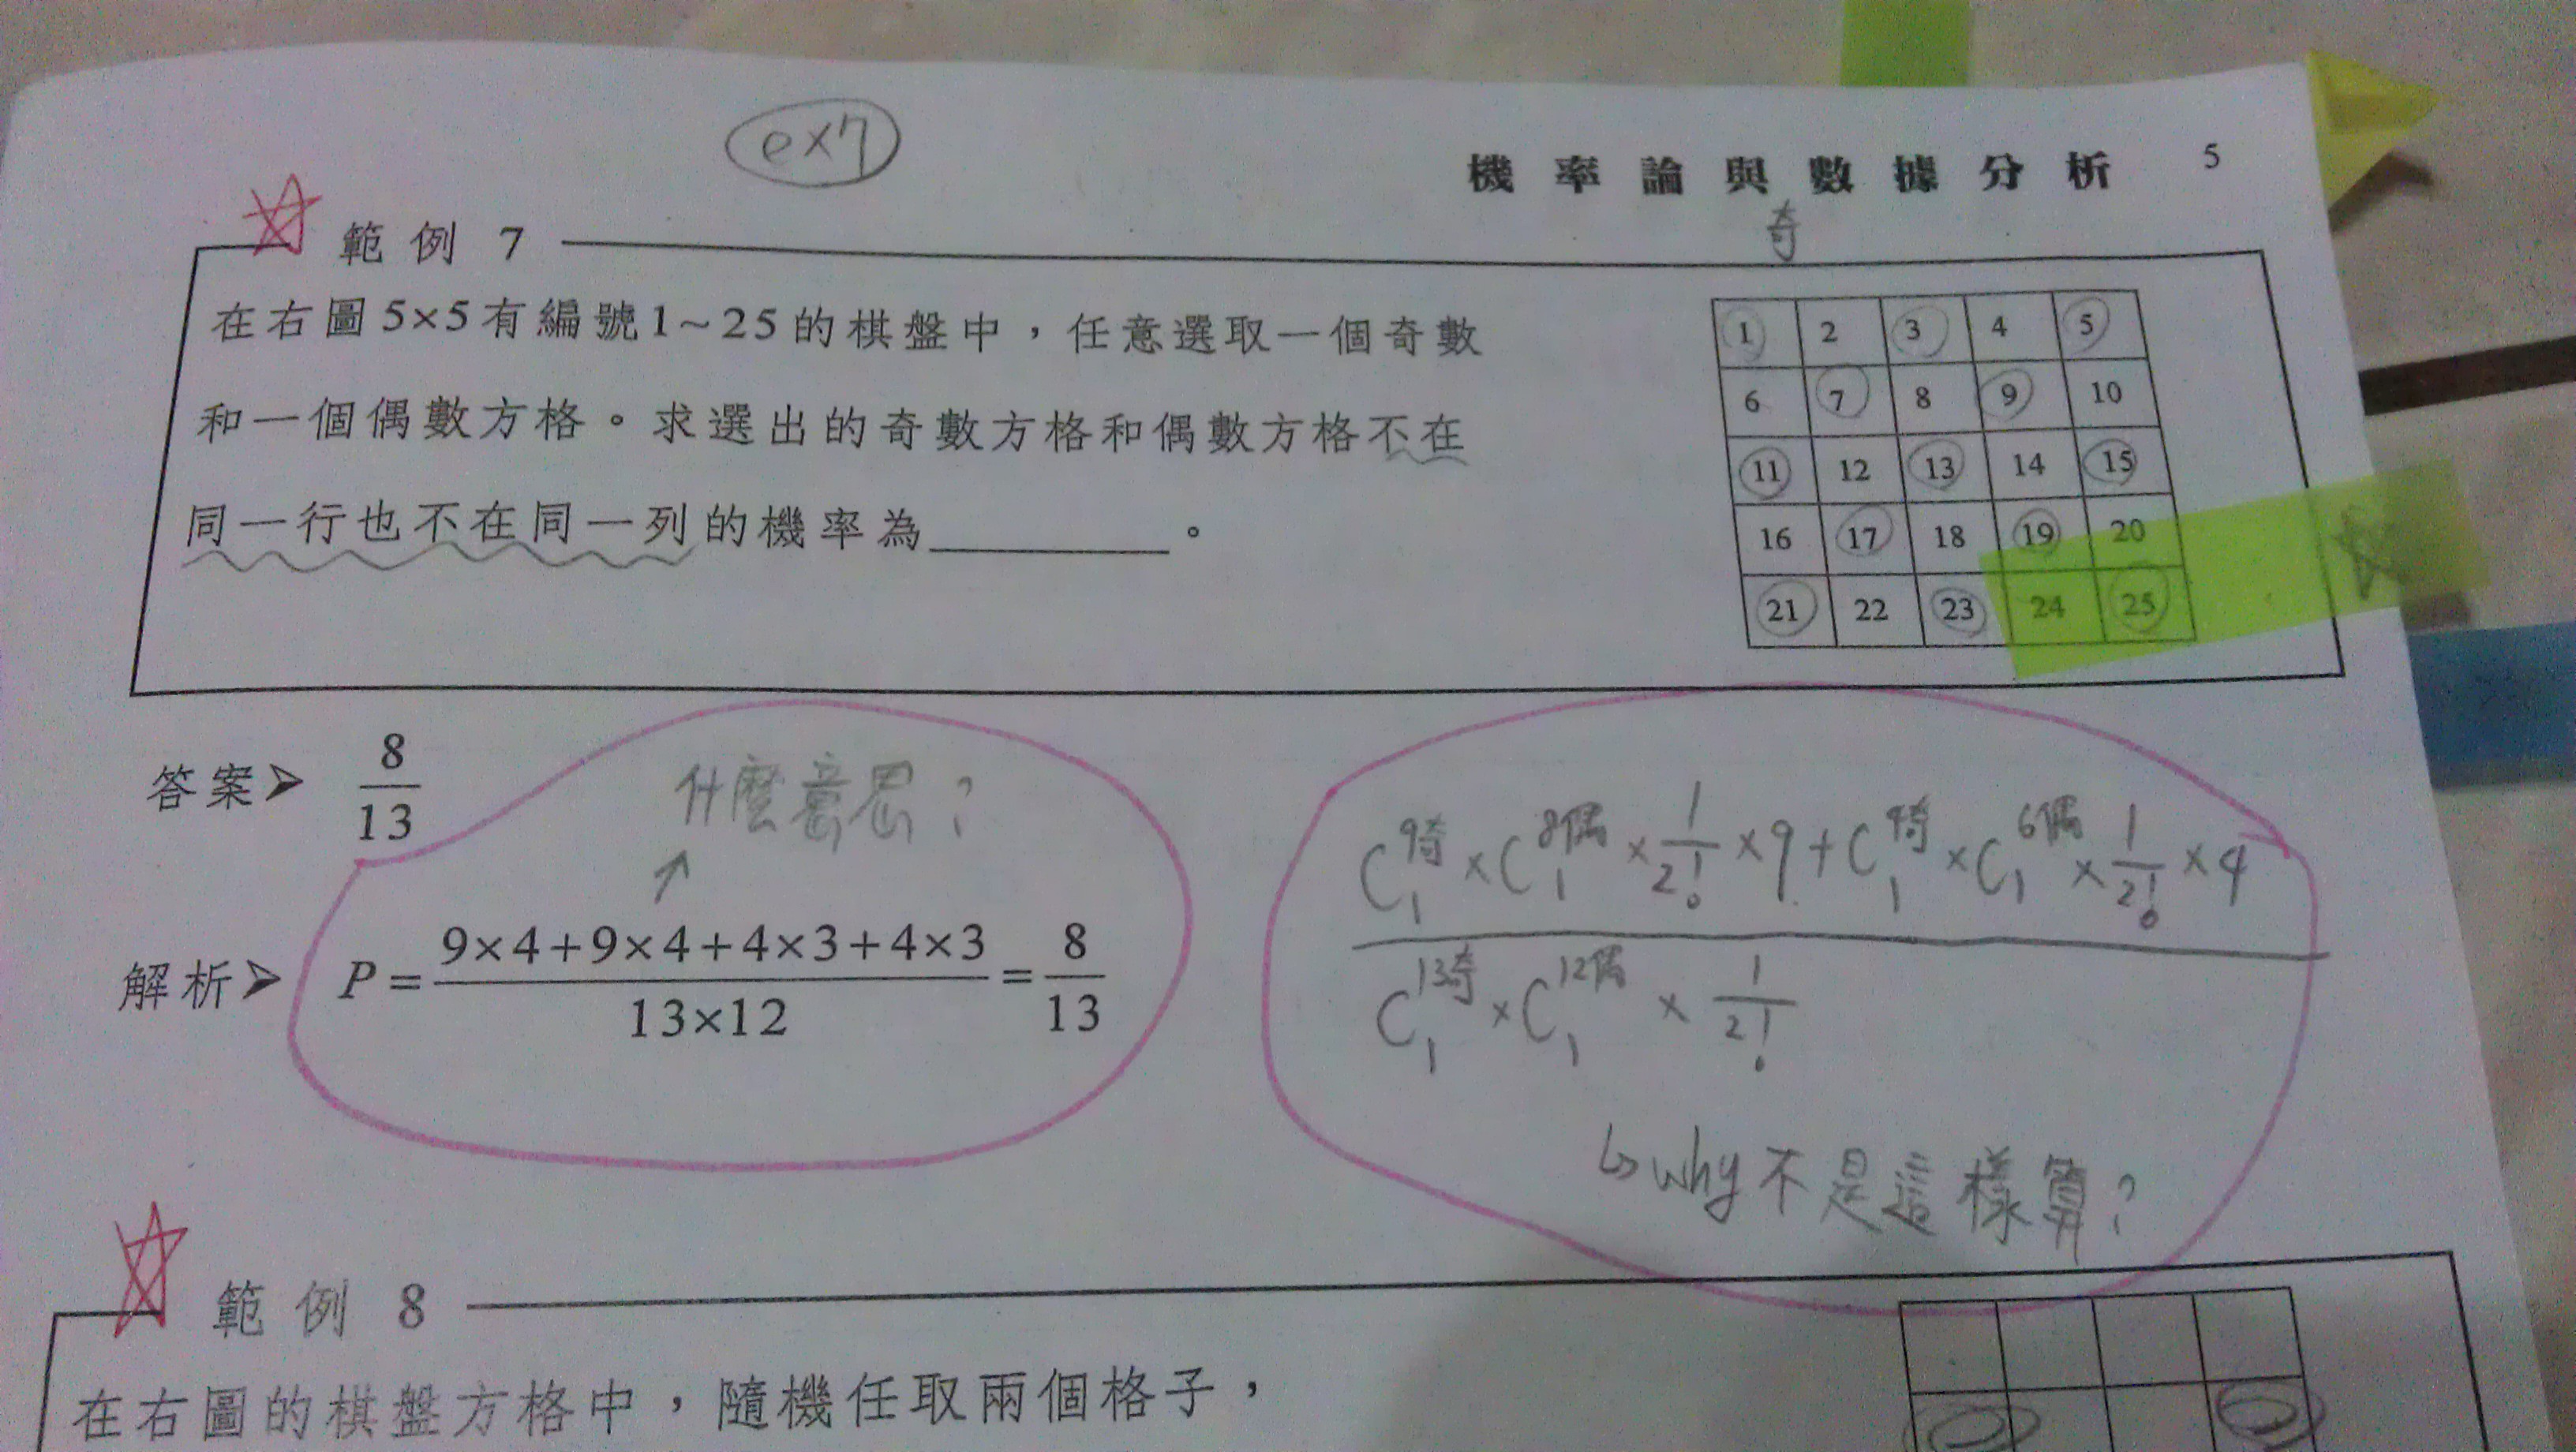 ex7
機率論與數據分析 5
奇
範例 7
在右圖5×5有編號1~25的棋盤中，任意選取一個奇數
和一個偶數方格。求選出的奇數方格和偶數方格不在
同一行也不在同一列的機率為________。
1 2 3 4 5
6 7 8 9 10
11 12 13 14 15
16 17 18 19 20
21 22 23 24 25
答案➤ 8/13
什麼意思？
↑
解析➤ P = (9×4+9×4+4×3+4×3)/(13×12) = 8/13
C₁^9奇 × C₁^8偶 × 1/2! × 9 + C₁^4奇 × C₁^6偶 × 1/2! × 4
C₁^13奇 × C₁^12偶 × 1/2!
↳ why不是這樣算？
範例 8
在右圖的棋盤方格中，隨機任取兩個格子，